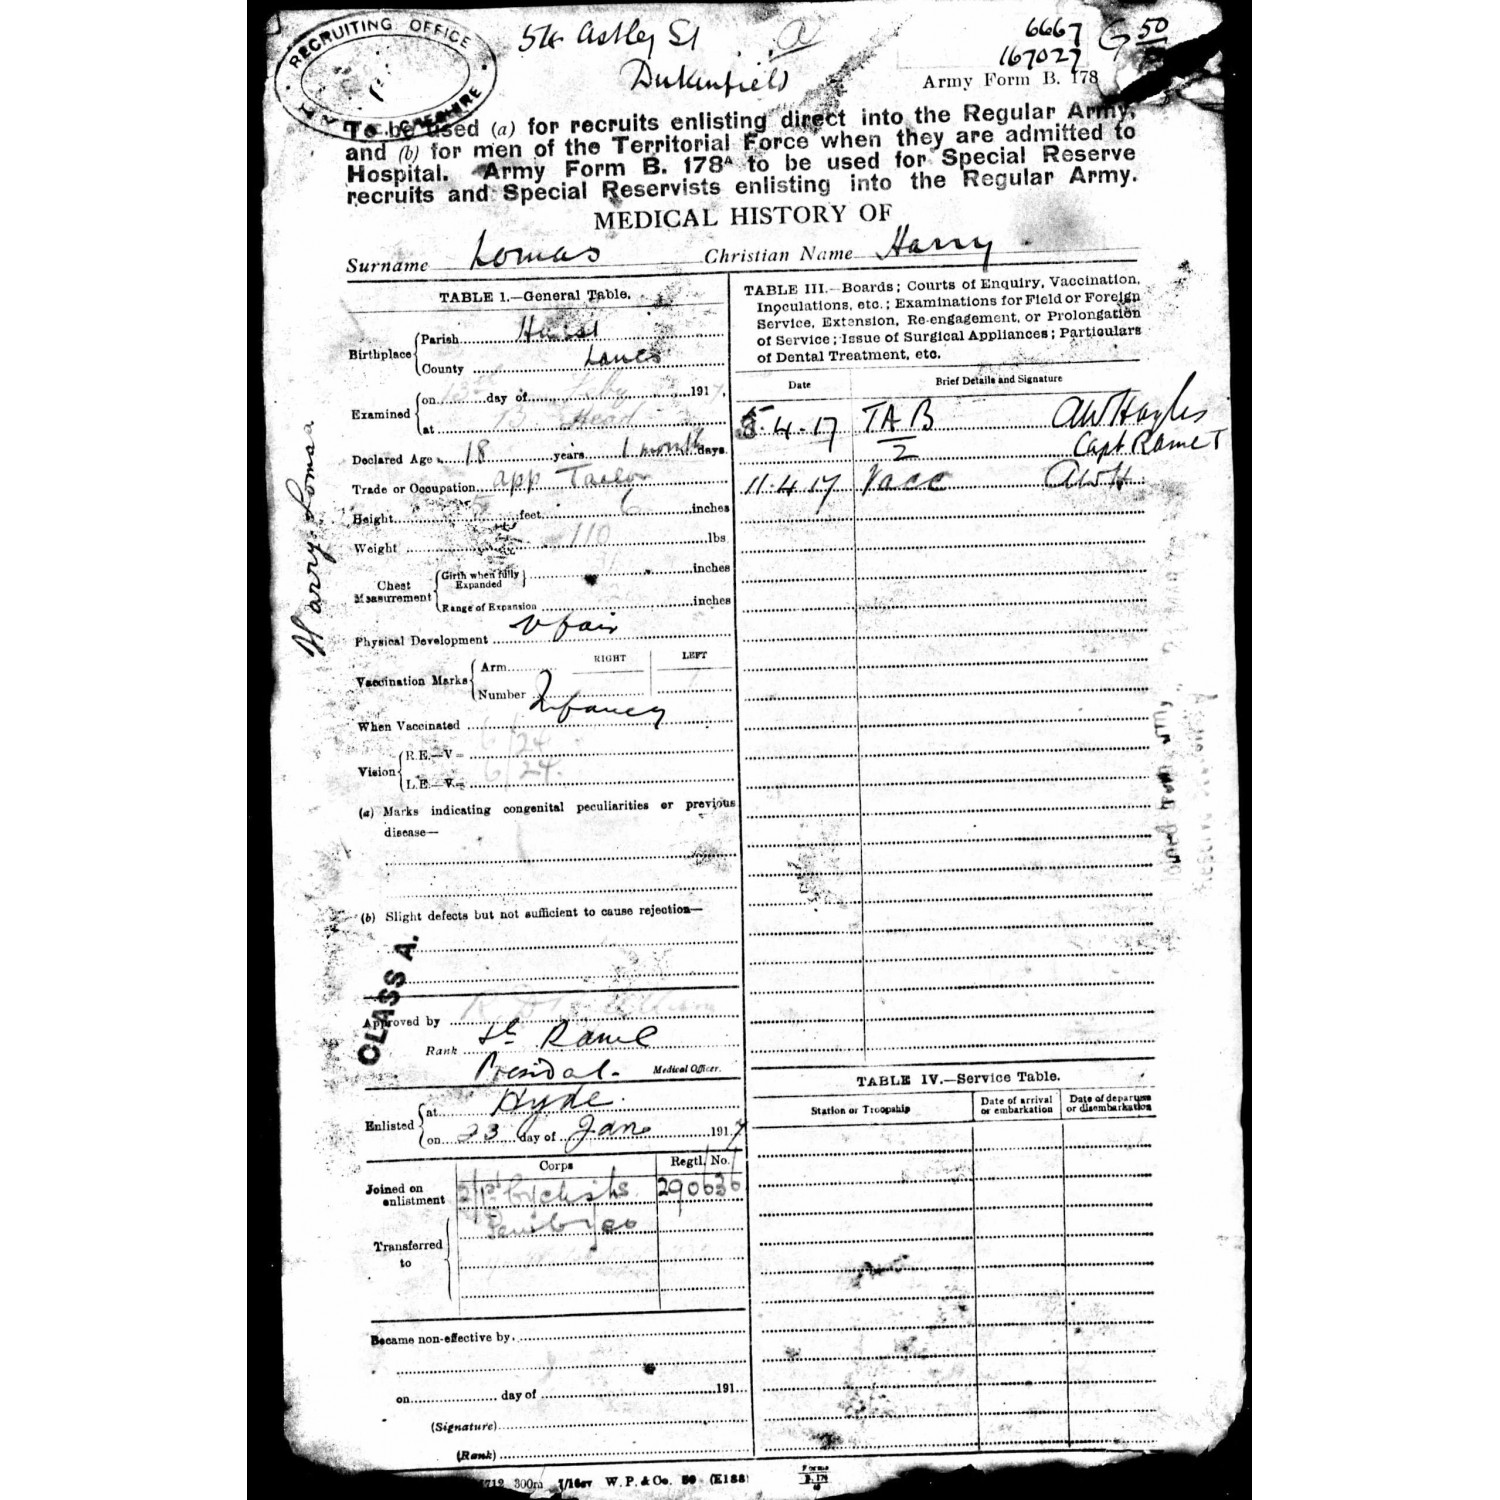 RECRUITING OFFICE
CHESHIRE
54 Astley St
Dukinfield
6667
167027
G 50
Army Form B. 178
To be used (a) for recruits enlisting direct into the Regular Army,
and (b) for men of the Territorial Force when they are admitted to
Hospital. Army Form B. 178A to be used for Special Reserve
recruits and Special Reservists enlisting into the Regular Army.
MEDICAL HISTORY OF
Surname Lomas Christian Name Harry
Harry Lomas
TABLE I.—General Table.
Birthplace
Parish Hurst
County Lancs
Examined
on 13th day of Feby 1917.
at B. Head
Declared Age 18 years 1 month days.
Trade or Occupation app Tailor
Height 5 feet 6 inches
Weight 110 lbs
Chest Measurement
Girth when fully Expanded inches
Range of Expansion inches
Physical Development V fair
Vaccination Marks
Arm RIGHT LEFT
Number
When Vaccinated Infancy
Vision
R.E.—V= 6/24
L.E.—V= 6/24.
(a) Marks indicating congenital peculiarities or previous
disease—
(b) Slight defects but not sufficient to cause rejection—
CLASS A.
Approved by
Rank Lt RAMC
Medical Officer.
Enlisted
at Hyde.
on 23 day of Jany 1917
Corps Regtl. No.
Joined on enlistment 2/1st Cyclists 290636
Transferred to
Became non-effective by.
on day of 191
(Signature)
(Rank)
TABLE III.—Boards; Courts of Enquiry, Vaccination,
Inoculations, etc.; Examinations for Field or Foreign
Service, Extension, Re-engagement, or Prolongation
of Service; Issue of Surgical Appliances; Particulars
of Dental Treatment, etc.
Date Brief Details and Signature
5.4.17 TAB/2 AW Hayles
Capt RAMC T
11.4.17 Vacc AWH
TABLE IV.—Service Table.
Station or Troopship
Date of arrival or embarkation
Date of departure or disembarkation
300m 7/16 W. P. & Co. 50 (E188)
Forms
B. 178